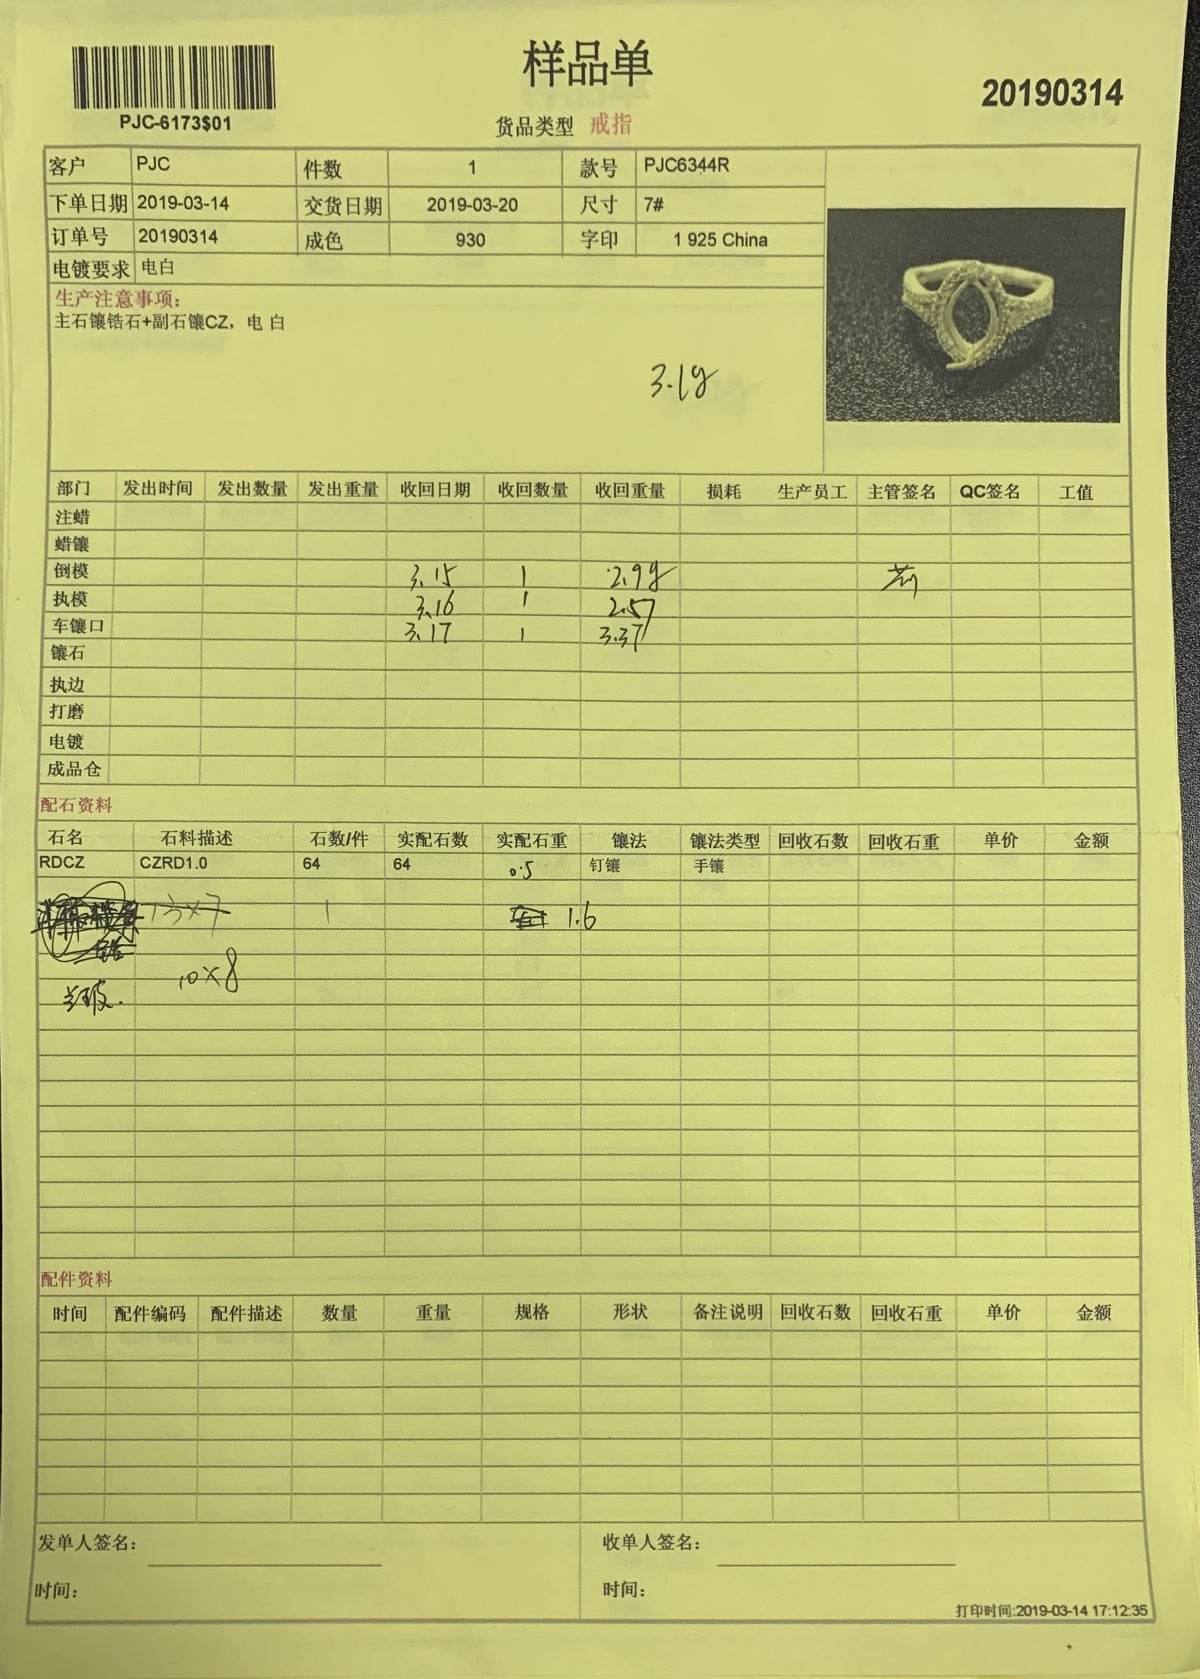 样品单
20190314
PJC-6173$01
货品类型 戒指
客户 PJC 件数 1 款号 PJC6344R
下单日期 2019-03-14 交货日期 2019-03-20 尺寸 7#
订单号 20190314 成色 930 字印 1 925 China
电镀要求 电白
生产注意事项：
主石镶锆石+副石镶CZ，电 白
3.1g
部门 发出时间 发出数量 发出重量 收回日期 收回数量 收回重量 损耗 生产员工 主管签名 QC签名 工值
注蜡
蜡镶
倒模 3.15 1 2.9g
执模 3.16 1 2.57
车镶口 3.17 1 3.37
镶石
执边
打磨
电镀
成品仓
配石资料
石名 石料描述 石数/件 实配石数 实配石重 镶法 镶法类型 回收石数 回收石重 单价 金额
RDCZ CZRD1.0 64 64 0.5 钉镶 手镶
13×7 1 1.6
10×8
配件资料
时间 配件编码 配件描述 数量 重量 规格 形状 备注说明 回收石数 回收石重 单价 金额
发单人签名： 收单人签名：
时间： 时间：
打印时间:2019-03-14 17:12:35